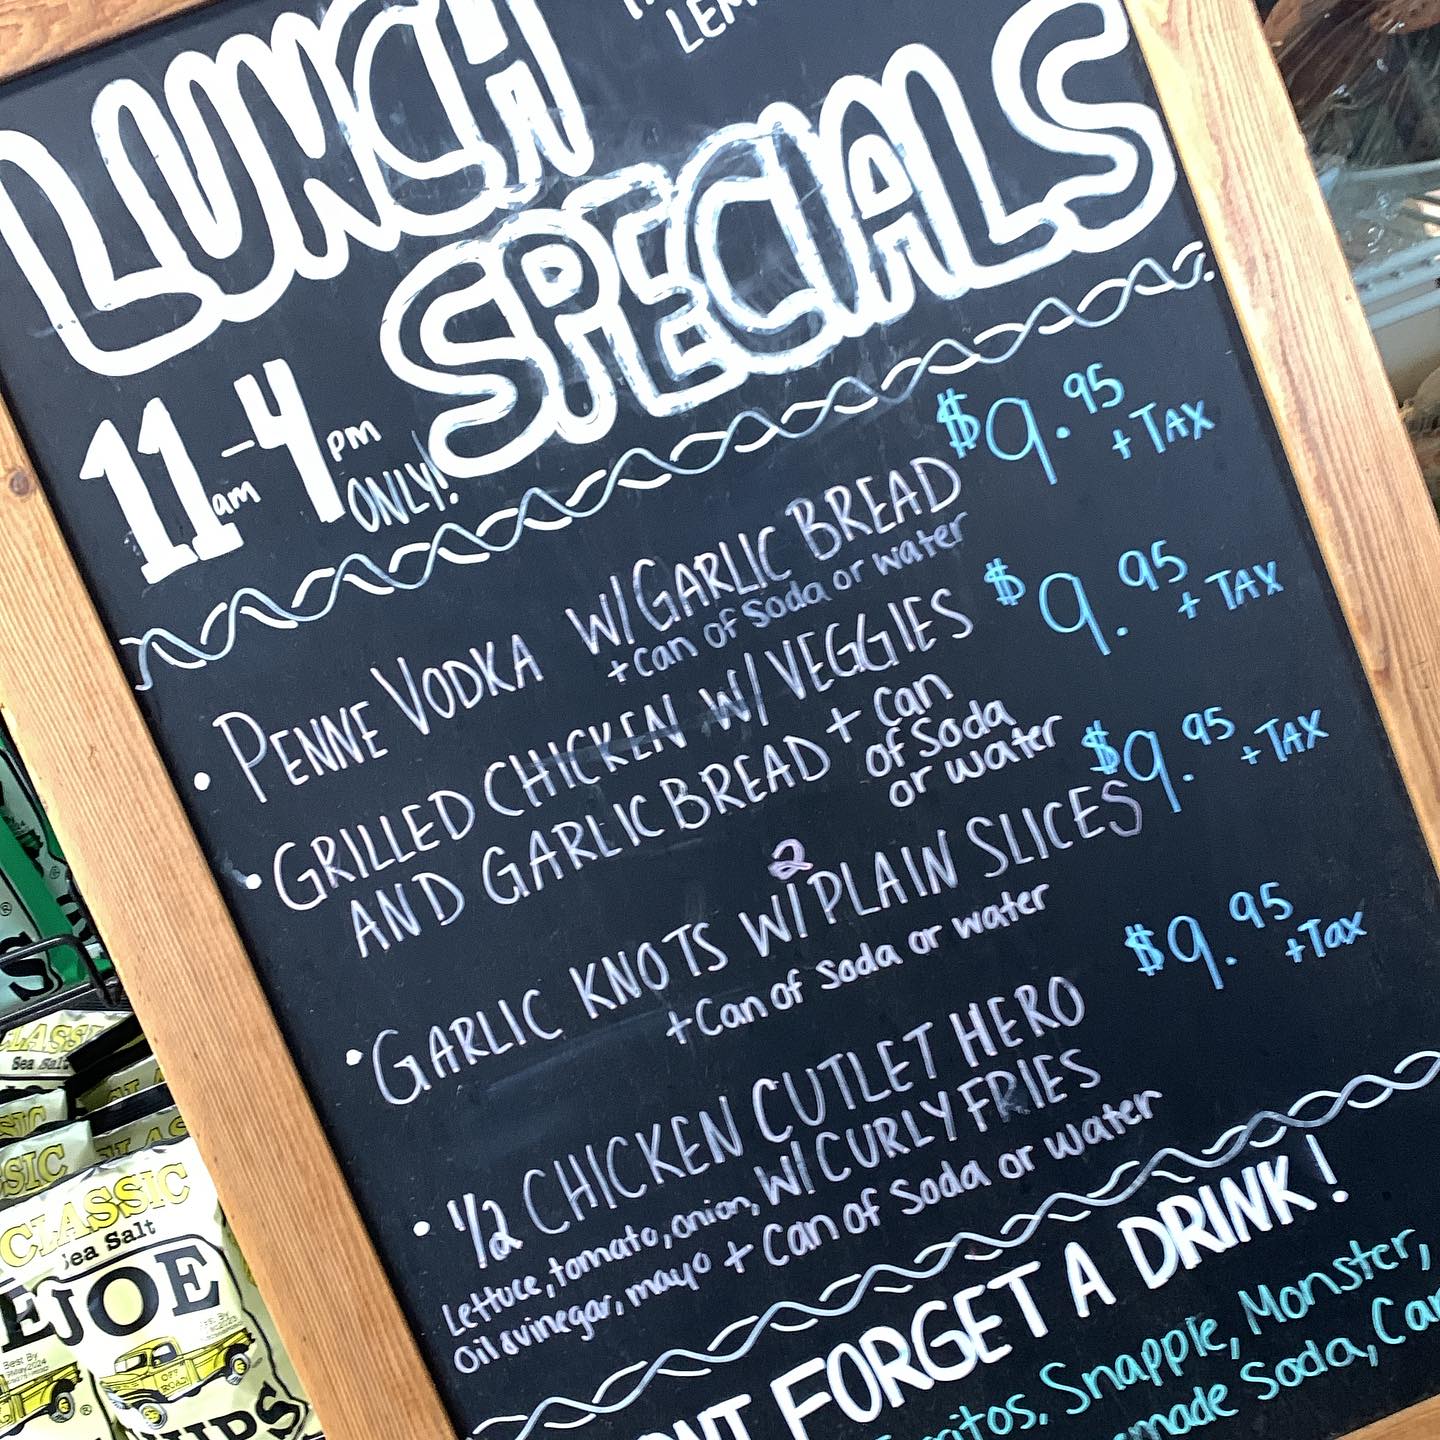 LUNCH
SPECIALS
11am-4pm
ONLY!
$9.95
+ TAX
• PENNE VODKA W/GARLIC BREAD
+can of Soda or water
$9.95
+ TAX
• GRILLED CHICKEN W/ VEGGIES
AND GARLIC BREAD + can
of Soda
or water
$9.95
+TAX
2
• GARLIC KNOTS W/PLAIN SLICES
+Can of Soda or water
$9.95
+Tax
• 1/2 CHICKEN CUTLET HERO
W/CURLY FRIES
Lettuce, tomato, onion,
oil & vinegar, mayo + Can of Soda or water
FORGET A DRINK!
Snapple, Monster,
Soda,
CLASSIC
Sea Salt
CLASSIC
Sea Salt
JOE
OFF
ROAD